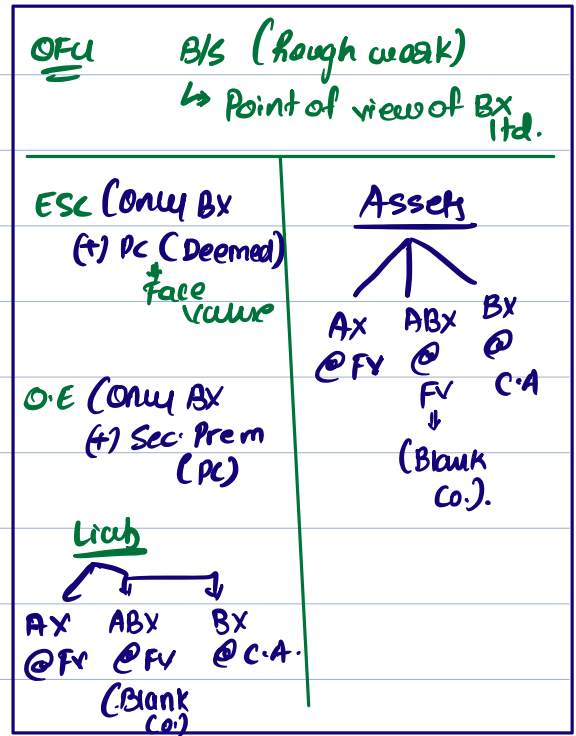 OFU B/S (Rough work)
↳ Point of view of BX
ltd.
ESC (Only BX
(+) PC (Deemed)
Face
value
O.E (Only BX
(+) Sec. Prem
(PC)
Liab
AX ABX BX
@FV @FV @C.A.
(Blank
Co.)
Assets
AX ABX BX
@FV @ @
FV C.A
(Blank
Co.).